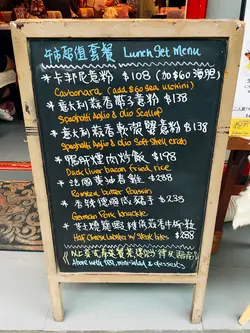 特超值套餐 Lunch Set Menu
* 卡邦尼意粉 $108 (加$60海胆)
Carbonara (add $60 sea urchin)
* 意大利蒜香帶子意粉 $138
Spaghetti Aglio & olio Scallop
* 意大利蒜香軟殼蟹意粉 $138
Spaghetti Aglio & olio Soft Shell crab
* 鴨肝煙肉炒飯 $198
Duck liver bacon fried rice
* 法國春雞 $288
Roasted butter Poussin
* 香辣德國咸豬手 $238
German Pork knuckle
* $288
Half Cheese Lobster w/ steak bites
以上套式
Above with, tea, mini-salad & desserts